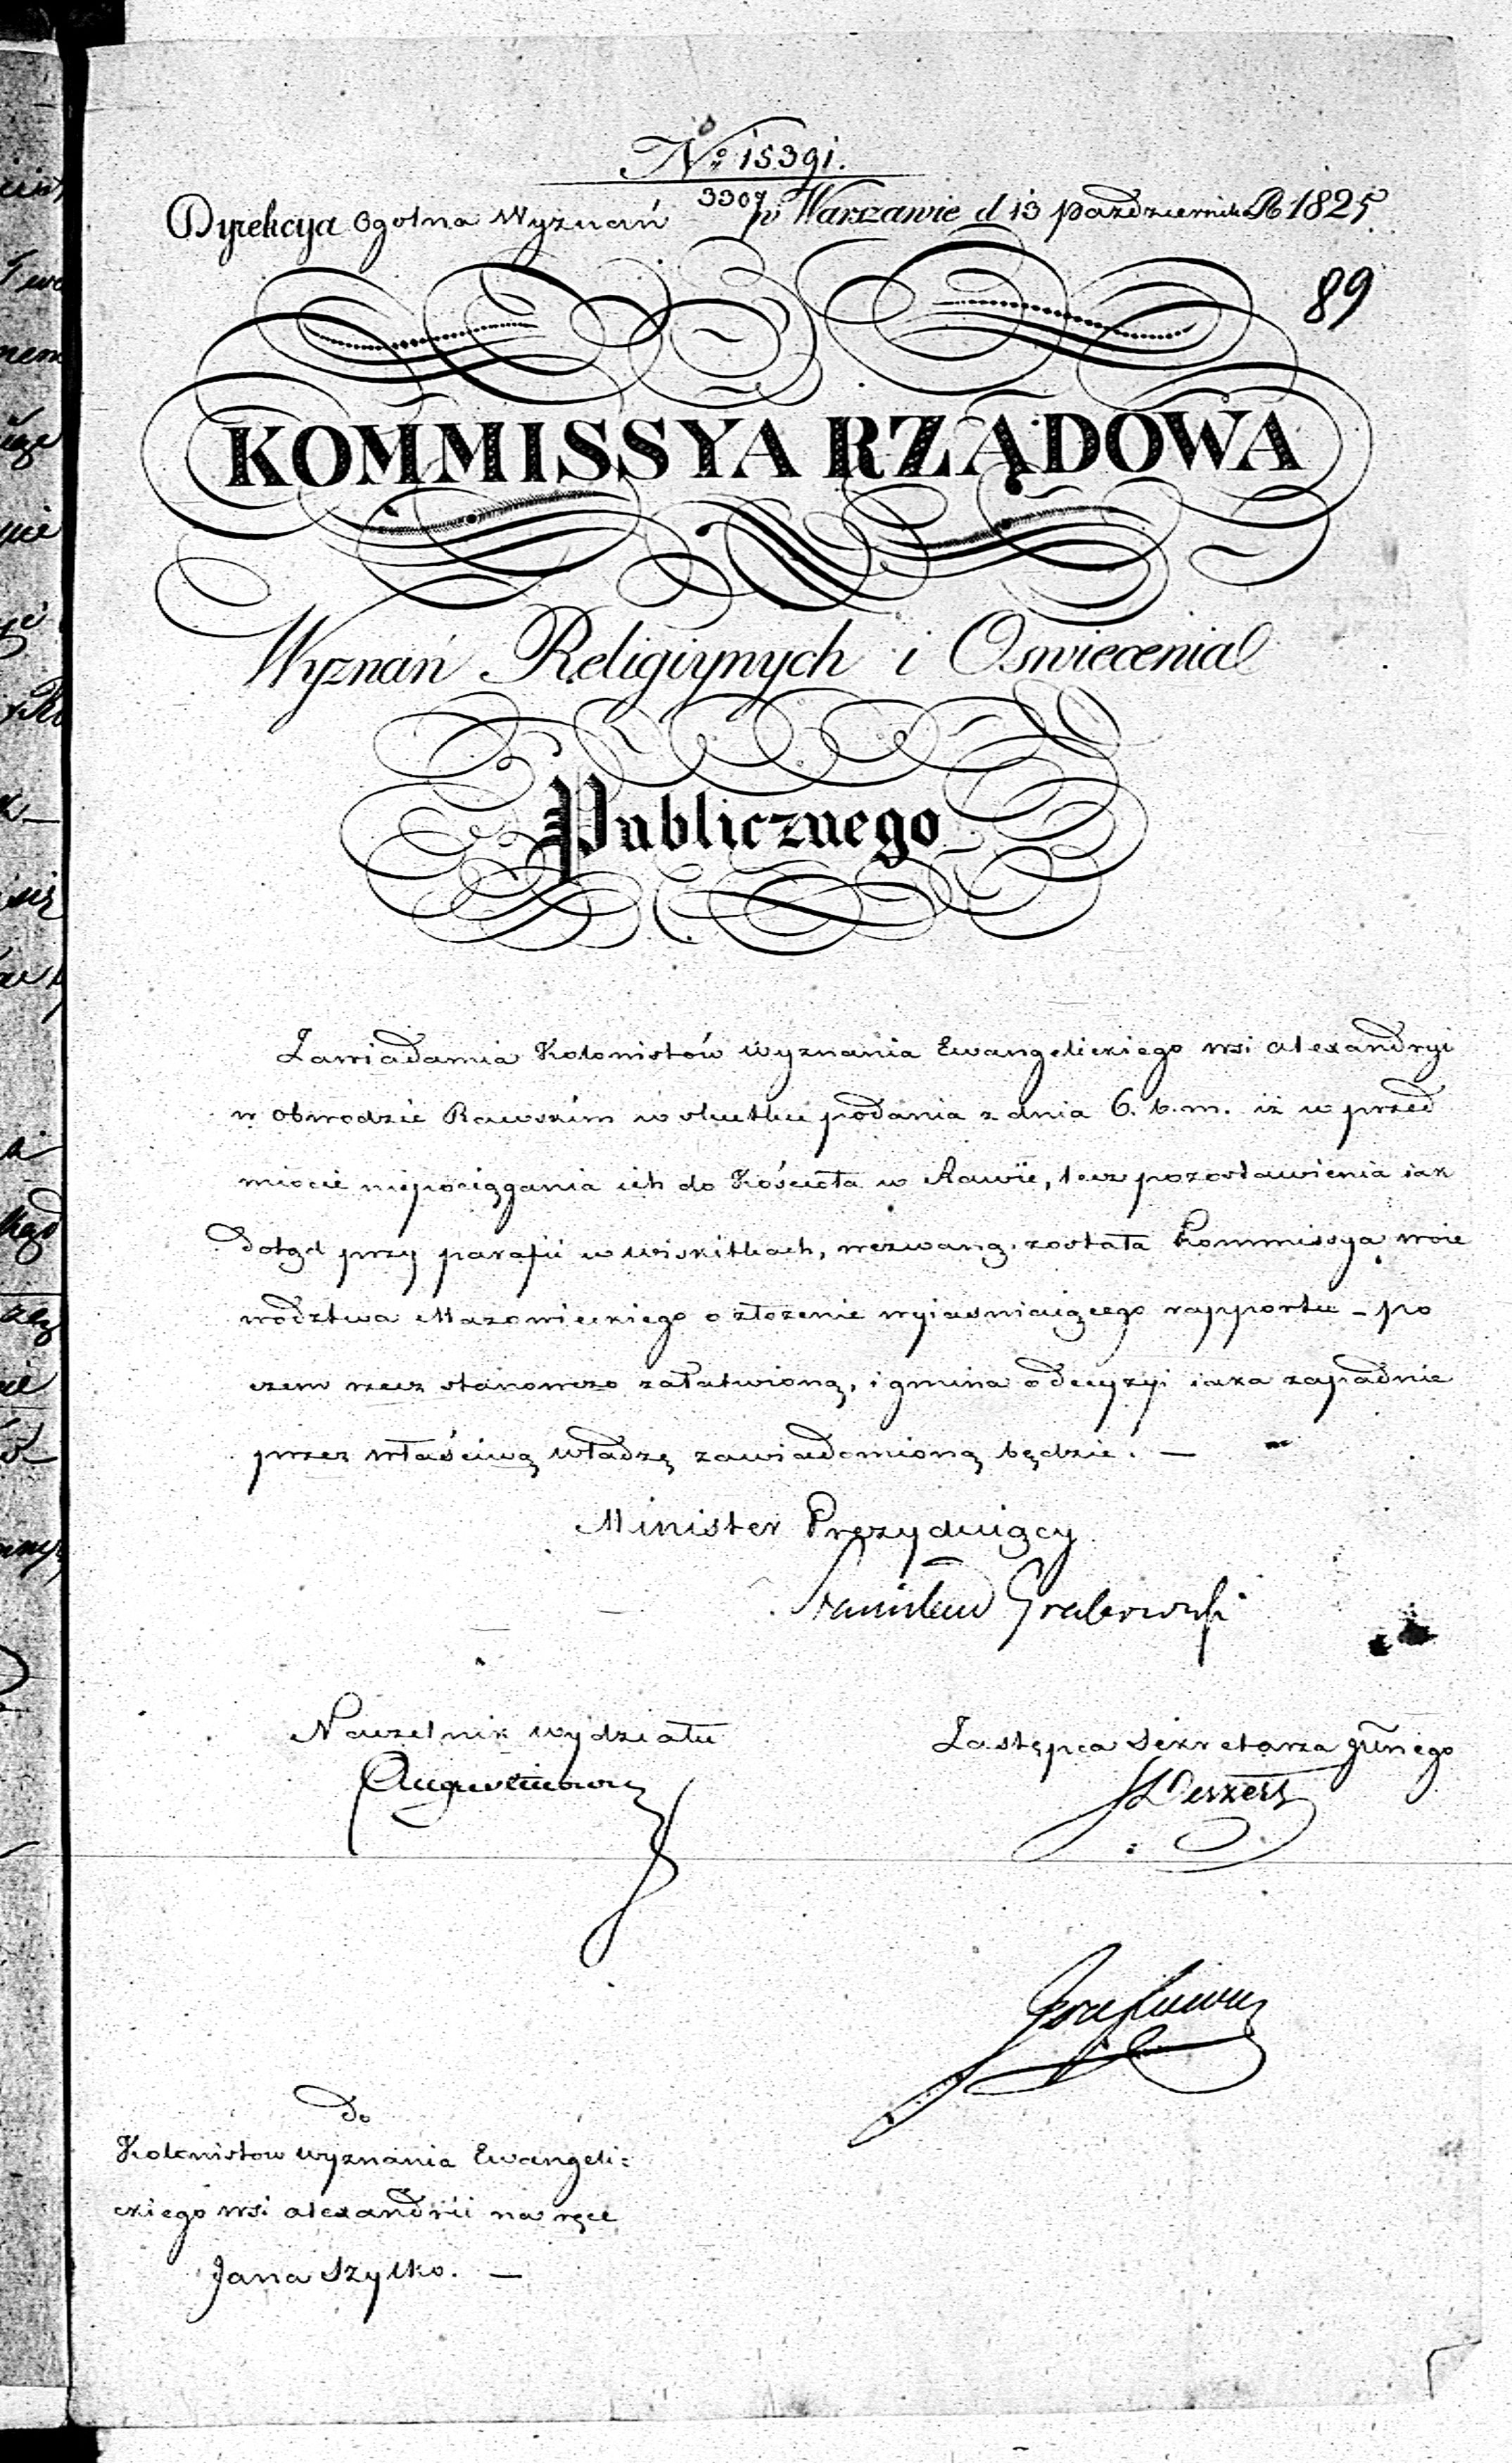 No 15391.
3307
Dyrekcya Ogolna Wyznań w Warszawie d 13 Października R 1825
89
KOMMISSYA RZĄDOWA
Wyznań Religiynych i Oswiecenia
Publicznego
Zawiadamia Kolonistów Wyznania Ewangelickiego wsi Alexandryi
w Obwodzie Rawskim w skutku podania z dnia 6. b.m. iż w przed
miocie niepociągania ich do Kościoła w Rawie, lecz pozostawienia iak
dotąd przy parafii w Wiskitkach, wezwaną została Kommissya woie
wodztwa Mazowieckiego o złożenie wyiaśniaiącego rapportu – po
czem rzecz stanowczo załatwioną, i gmina o decyzyi iaka zapadnie
przez właściwą władzę zawiadomioną będzie. —
Minister Prezyduiący
Stanisław Grabowski
Naczelnik wydziału
Augustinowicz
Zastępca Sekretarza Jlnego
Do
Kolonistow wyznania Ewangeli:
ckiego wsi Alexandrii na ręce
Jana Szylko. —